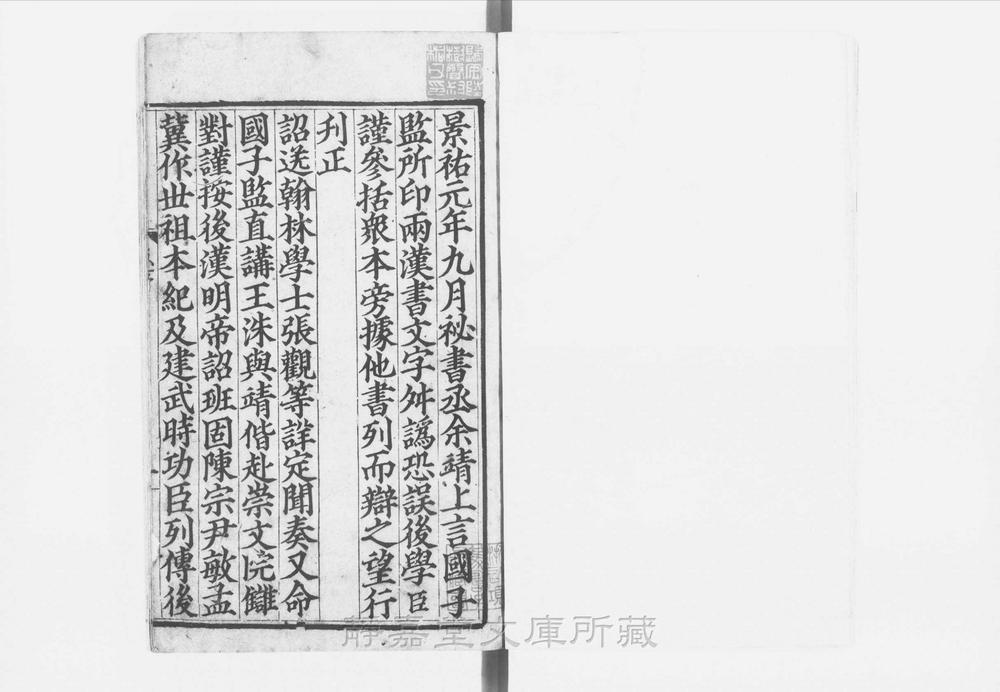 景祐元年九月祕書丞余靖上言國子
監所印兩漢書文字舛譌恐誤後學臣
謹參括衆本旁據他書列而辯之望行
刋正
詔送翰林學士張觀等詳定聞奏又命
國子監直講王洙與靖偕赴崇文院讎
對謹按後漢明帝詔班固陳宗尹敏孟
冀作丗祖本紀及建武時功臣列傳後
靜嘉堂文庫所藏